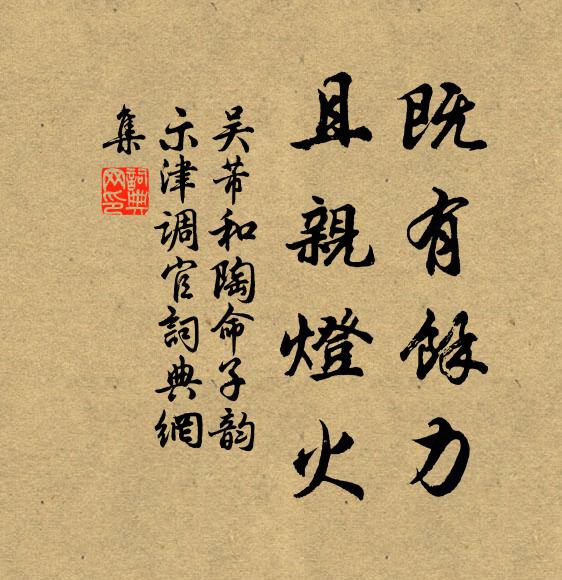 既有餘力
且親燈火
吳芾和陶命子韵
示津调官詞典網
集
詞典
网印